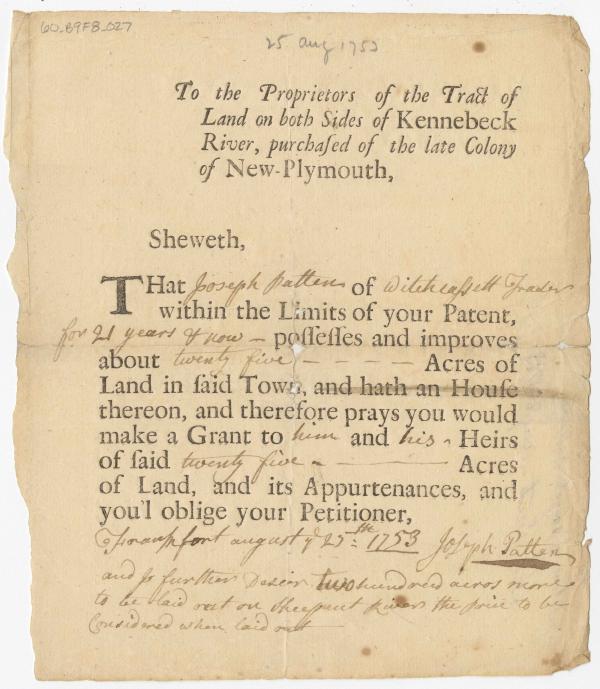 60-B9F8-027
25 aug 1753
To the Proprietors of the Tract of
Land on both Sides of Kennebeck
River, purchaſed of the late Colony
of New-Plymouth,
Sheweth,
THat Joseph Patten of Witchcassett Trader
within the Limits of your Patent,
for 21 years & now – poſſeſſes and improves
about twenty five – – – – Acres of
Land in ſaid Town, and hath an Houſe
thereon, and therefore prays you would
make a Grant to him and his – Heirs
of ſaid twenty five – – Acres
of Land, and its Appurtenances, and
you'l oblige your Petitioner,
Frankfort august ye 25th: 1753 Joseph Patten
and so further Desier two hundred acros more
to be laid out on Sheepscut River the price to be
Considered when laid out